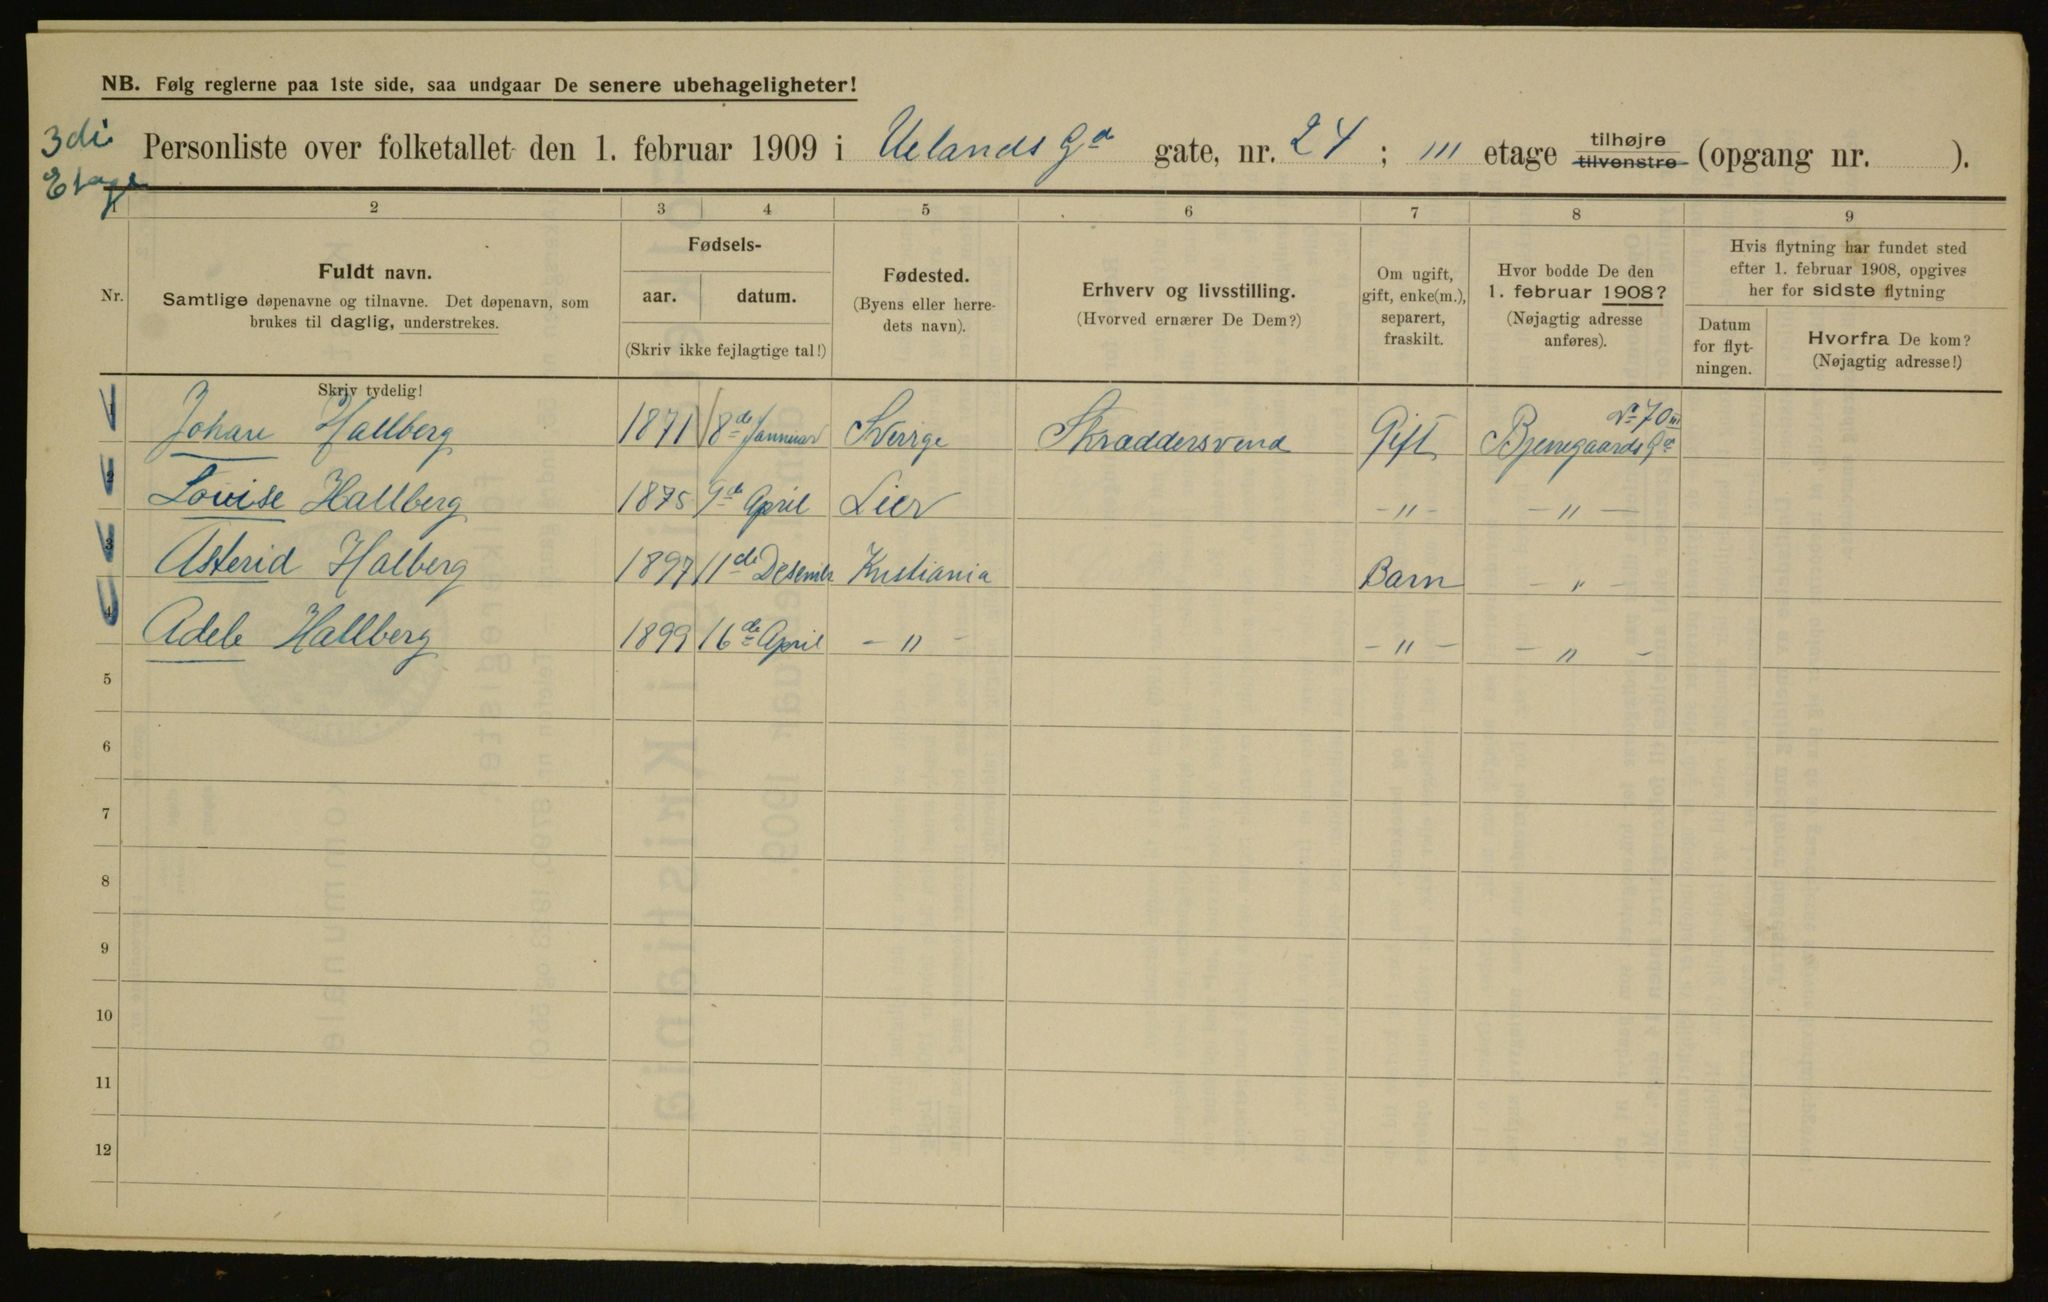 NB. Følg reglerne paa 1ste side, saa undgaar De senere ubehageligheter!
3die Etage
Personliste over folketallet den 1. februar 1909 i Uelands Gd gate, nr. 24 ; III etage tilhøjre tilvenstre (opgang nr. ).
1 2 3 4 5 6 7 8 9
Nr.
Fuldt navn.
Samtlige døpenavne og tilnavne. Det døpenavn, som
brukes til daglig, understrekes.
Skriv tydelig!
Fødsels-
aar. datum.
(Skriv ikke fejlagtige tal!)
Fødested.
(Byens eller herre-
dets navn).
Erhverv og livsstilling.
(Hvorved ernærer De Dem?)
Om ugift,
gift, enke(m.),
separert,
fraskilt.
Hvor bodde De den
1. februar 1908?
(Nøjagtig adresse
anføres).
Hvis flytning har fundet sted
efter 1. februar 1908, opgives
her for sidste flytning
Datum
for flyt-
ningen.
Hvorfra De kom?
(Nøjagtig adresse!)
1 Johan Hallberg 1871 8de Januar Sverrge Skræddersvend Gift Bjerregaards Gd No 70 III
2 Lovise Hallberg 1875 9de April Lier -"- -"-
3 Asterid Halberg 1897 11de Desembr Kristiania Barn -"-
4 Adele Hallberg 1899 16de April -"- -"- -"-
5
6
7
8
9
10
11
12